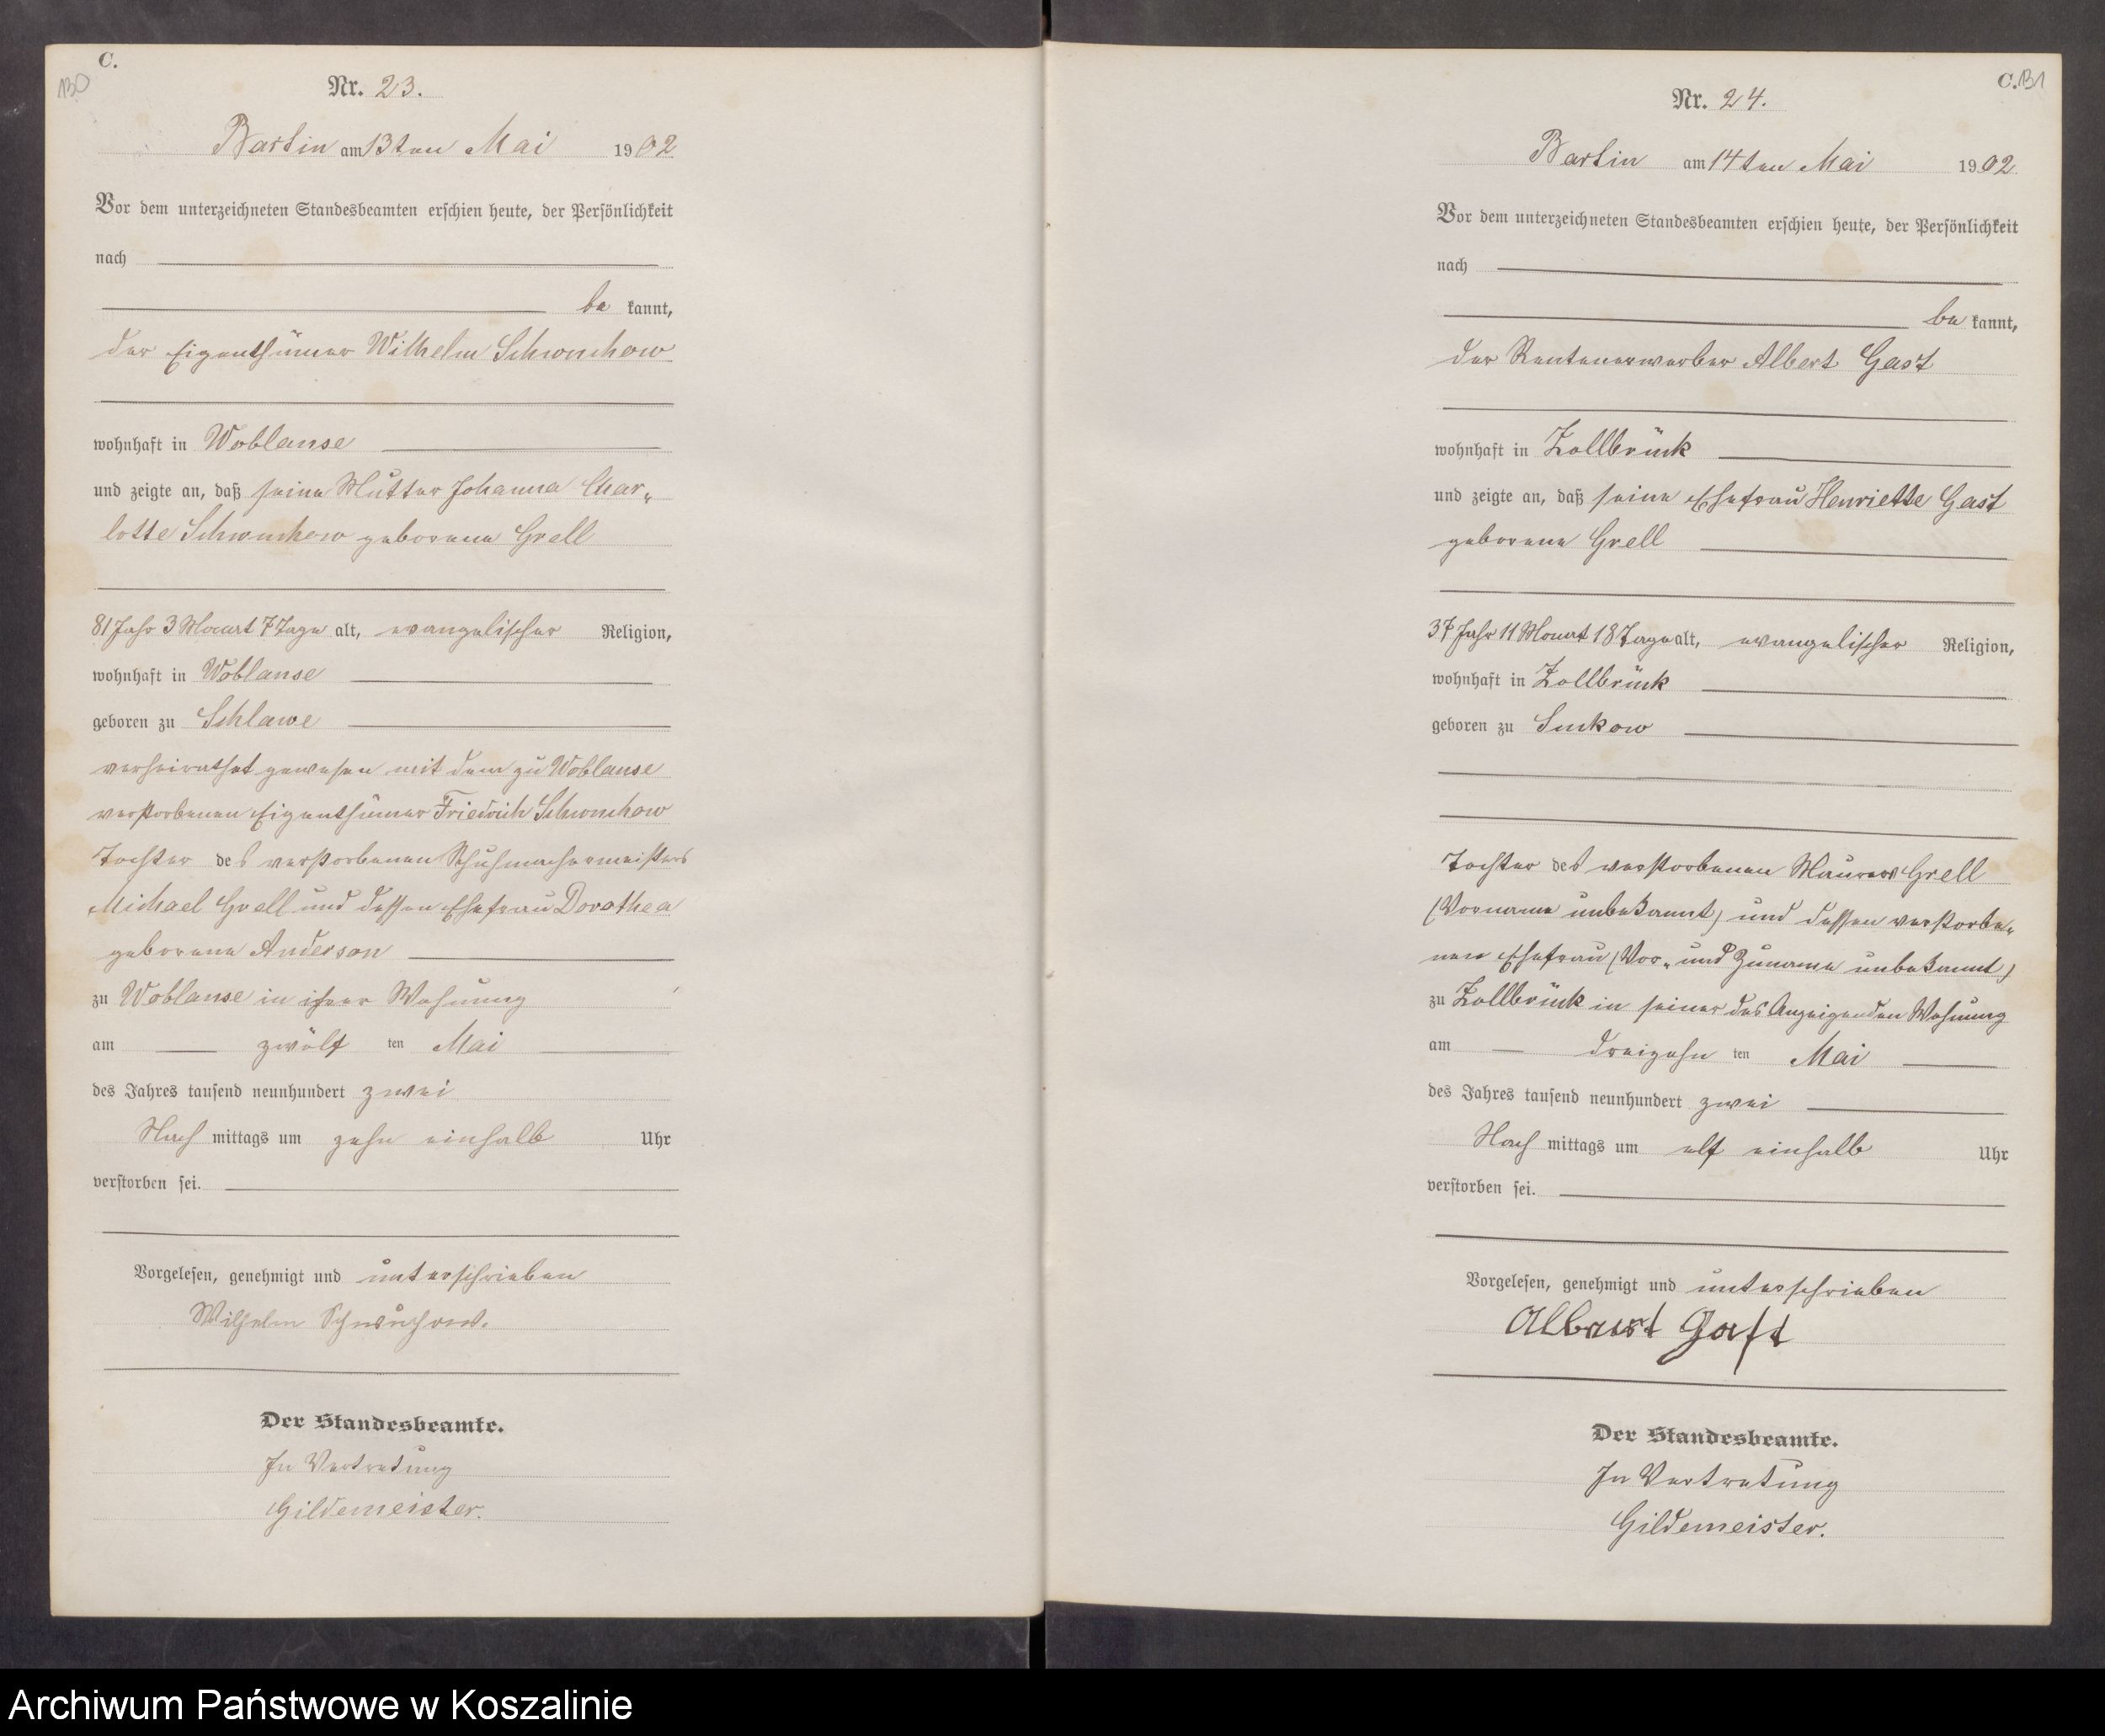 C.
130
Nr. 23.
Bartin am 13ten Mai 1902
Vor dem unterzeichneten Standesbeamten erschien heute, der Persönlichkeit
nach
be kannt,
der Eigenthümer Wilhelm Schwuchow
wohnhaft in Woblanse
und zeigte an, daß seine Mutter Johanna Char„
lotte Schwuchow geborene Grell
81 Jahr 3 Monat 7 Tage alt, evangelischer Religion,
wohnhaft in Woblanse
geboren zu Schlawe
verheirathet gewesen mit dem zu Woblanse
verstorbenen Eigenthümer Friedrich Schwuchow
Tochter des verstorbenen Schuhmachermeisters
Michael Grell und dessen Ehefrau Dorothea
geborene Anderson
zu Woblanse in ihrer Wohnung
am zwölf ten Mai
des Jahres tausend neunhundert zwei
Nach mittags um zehn einhalb Uhr
verstorben sei.
Vorgelesen, genehmigt und unterschrieben
Wilhelm Schwuchow.
Der Standesbeamte.
In Vertretung
Gildemeister.
C. 131
Nr. 24.
Bartin am 14ten Mai 1902
Vor dem unterzeichneten Standesbeamten erschien heute, der Persönlichkeit
nach
be kannt,
der Rentenerwerber Albert Gast
wohnhaft in Zollbrück
und zeigte an, daß seine Ehefrau Henriette Gast
geborene Grell
37 Jahr 11 Monat 18 Tage alt, evangelischer Religion,
wohnhaft in Zollbrück
geboren zu Suckow
Tochter des verstorbenen Maurers Grell
(Vorname unbekannt) und dessen verstorbe„
nen Ehefrau (Vor„ und Zuname unbekannt)
zu Zollbrück in seiner des Anzeigenden Wohnung
am dreizehn ten Mai
des Jahres tausend neunhundert zwei
Nach mittags um elf einhalb Uhr
verstorben sei.
Vorgelesen, genehmigt und unterschrieben
Albert Gast
Der Standesbeamte.
In Vertretung
Gildemeister.
Archiwum Państwowe w Koszalinie